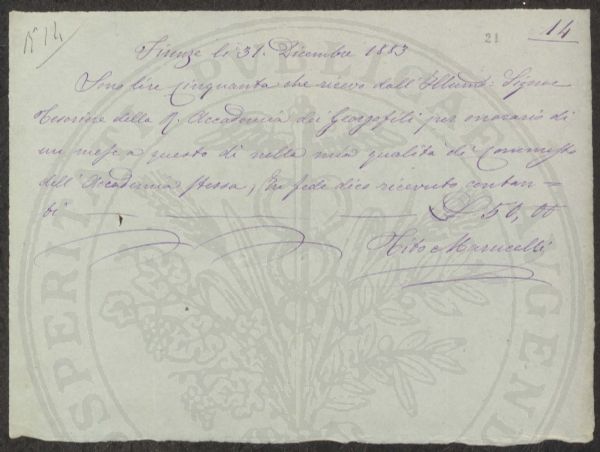 N° 14
21
14
Firenze li 31. Dicembre 1883
Sono lire cinquanta che ricevo dall'Illumo. Signor
Tesoriere della R. Accademia dei Georgofili per onorario di
un mese a questo dì nella mia qualità di Commesso
dell'Accademia stessa, In fede dico ricevuto contan-
ti £ 50,00
Tito Marucelli
PROSPERITATEM PUBLICAE AUGENDAE